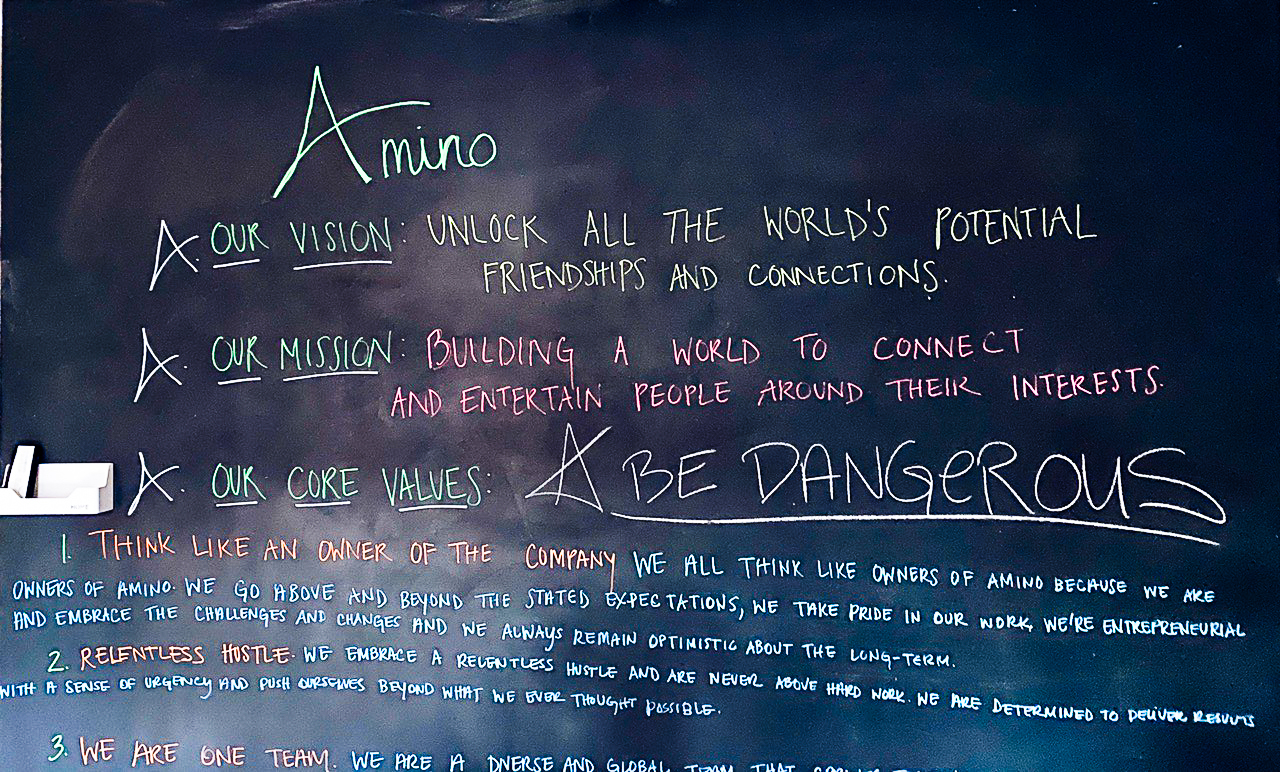 Amino
A. OUR VISION: UNLOCK ALL THE WORLD'S POTENTIAL
FRIENDSHIPS AND CONNECTIONS.
A. OUR MISSION: BUILDING A WORLD TO CONNECT
AND ENTERTAIN PEOPLE AROUND THEIR INTERESTS.
A. OUR CORE VALUES: A BE DANGEROUS
1. THINK LIKE AN OWNER OF THE COMPANY WE ALL THINK LIKE OWNERS OF AMINO BECAUSE WE ARE
OWNERS OF AMINO. WE GO ABOVE AND BEYOND THE STATED EXPECTATIONS, WE TAKE PRIDE IN OUR WORK, WE'RE ENTREPRENEURIAL
AND EMBRACE THE CHALLENGES AND CHANGES AND WE ALWAYS REMAIN OPTIMISTIC ABOUT THE LONG-TERM.
2. RELENTLESS HUSTLE. WE EMBRACE A RELENTLESS HUSTLE AND ARE NEVER ABOVE HARD WORK. WE ARE DETERMINED TO DELIVER RESULTS
WITH A SENSE OF URGENCY AND PUSH OURSELVES BEYOND WHAT WE EVER THOUGHT POSSIBLE.
3. WE ARE ONE TEAM. WE ARE A DIVERSE AND GLOBAL TEAM THAT